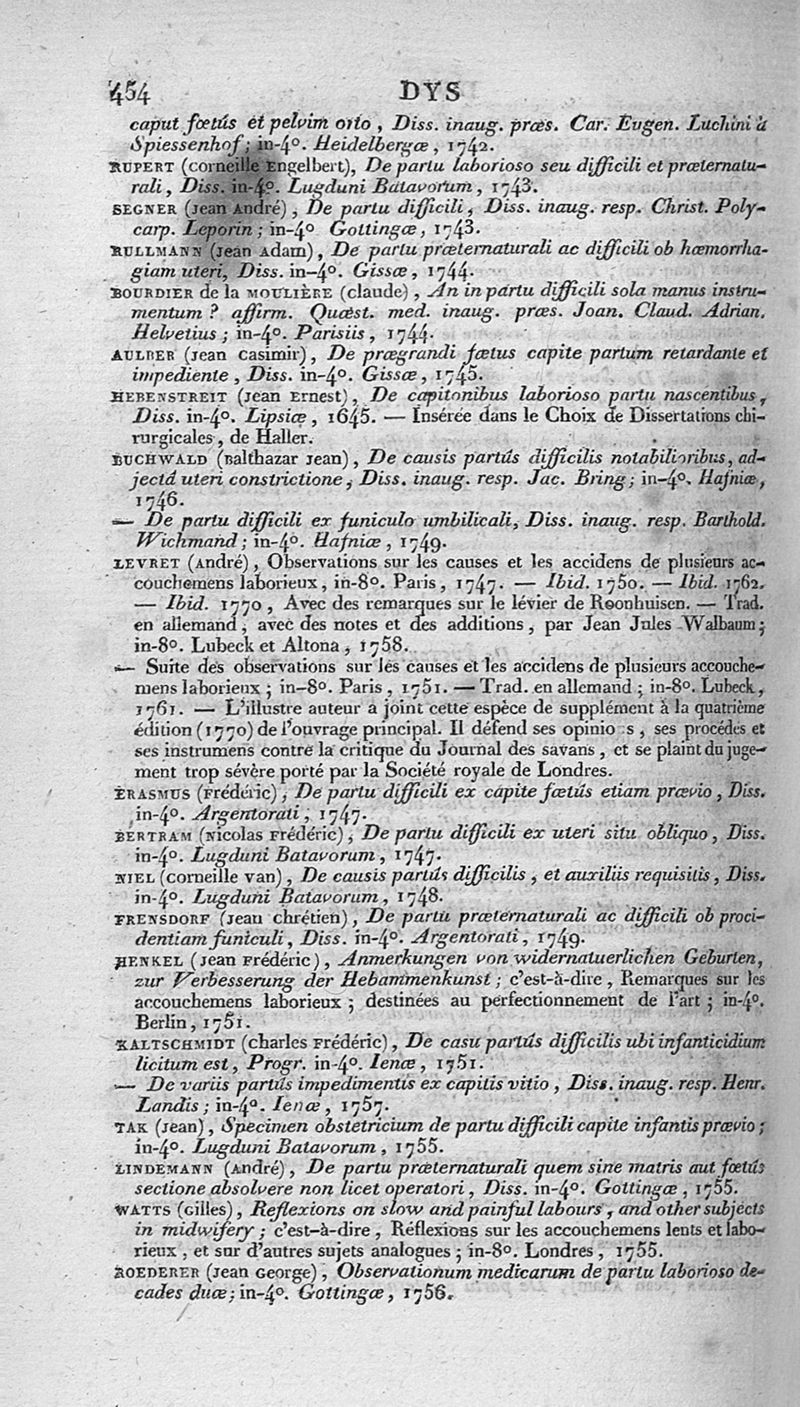 454 DYS
caput fœtûs et pelvim orto, Diss. inaug. præs. Car. Eugen. Luchini à
Spiessenhof; in-4°. Heidelbergæ, 1742.
RUPERT (corneille Engelbert), De partu laborioso seu difficili et præternatu-
rali, Diss. in-4°. Lugduni Batavorum, 1743.
SEGNER (jean André), De partu difficili, Diss. inaug. resp. Christ. Poly-
carp. Leporin; in-4° Gottingæ, 1743.
RULLMANN (jean Adam), De partu præternaturali ac difficili ob hæmorrha-
giam uteri, Diss. in-4°. Gissæ, 1744.
BOURDIER de la MOULIÈRE (claude), An in partu difficili sola manus instru-
mentum? affirm. Quæst. med. inaug. præs. Joan. Claud. Adrian.
Helvetius; in-4°. Parisiis, 1744.
AULBER (jean casimir), De prægrandi fœtus capite partum retardante et
impediente, Diss. in-4°. Gissæ, 1745.
HEBENSTREIT (jean Ernest), De capitonibus laborioso partu nascentibus,
Diss. in-4°. Lipsiæ, 1645. — Insérée dans le Choix de Dissertations chi-
rurgicales, de Haller.
BUCHWALD (Balthazar jean), De causis partûs difficilis notabilioribus, ad-
jectâ uteri constrictione, Diss. inaug. resp. Jac. Bring; in-4°. Hafniæ,
1746.
— De partu difficili ex funiculo umbilicali, Diss. inaug. resp. Barthold.
Wichmand; in-4°. Hafniæ, 1749.
LEVRET (André), Observations sur les causes et les accidens de plusieurs ac-
couchemens laborieux, in-8°. Paris, 1747. — Ibid. 1750. — Ibid. 1762.
— Ibid. 1770, Avec des remarques sur le lévier de Roonhuisen. — Trad.
en allemand, avec des notes et des additions, par Jean Jules Walbaum;
in-8°. Lubeck et Altona, 1758.
— Suite des observations sur les causes et les accidens de plusieurs accouche-
mens laborieux; in-8°. Paris, 1751. — Trad. en allemand; in-8°. Lubeck,
1761. — L'illustre auteur a joint cette espèce de supplément à la quatrième
édition (1770) de l'ouvrage principal. Il défend ses opinio s, ses procédés et
ses instrumens contre la critique du Journal des savans, et se plaint du juge-
ment trop sévère porté par la Société royale de Londres.
ERASMUS (Frédéric), De partu difficili ex capite fœtûs etiam prævio, Diss.
in-4°. Argentorati, 1747.
BERTRAM (Nicolas Frédéric), De partu difficili ex uteri situ obliquo, Diss.
in-4°. Lugduni Batavorum, 1747.
NIEL (corneille van), De causis partûs difficilis, et auxiliis requisitis, Diss.
in-4°. Lugduni Batavorum, 1748.
FRENSDORF (jean chrétien), De partu præternaturali ac difficili ob proci-
dentiam funiculi, Diss. in-4°. Argentorati, 1749.
HENKEL (jean Frédéric), Anmerkungen von widernatuerlichen Geburten,
zur Verbesserung der Hebammenkunst; c'est-à-dire, Remarques sur les
accouchemens laborieux; destinées au perfectionnement de l'art; in-4°.
Berlin, 1751.
KALTSCHMIDT (charles Frédéric), De casu partûs difficilis ubi infanticidium
licitum est, Progr. in-4°. Ienæ, 1751.
— De variis partûs impedimentis ex capitis vitio, Diss. inaug. resp. Henr.
Landis; in-4°. Ienæ, 1757.
TAK (jean), Specimen obstetricium de partu difficili capite infantis prævio;
in-4°. Lugduni Batavorum, 1755.
LINDEMANN (André), De partu præternaturali quem sine matris aut fœtûs
sectione absolvere non licet operatori, Diss. in-4°. Gottingæ, 1755.
WATTS (Gilles), Reflexions on slow and painful labours, and other subjects
in midwifery; c'est-à-dire, Réflexions sur les accouchemens lents et labo-
rieux, et sur d'autres sujets analogues; in-8°. Londres, 1755.
ROEDERER (jean George), Observationum medicarum de partu laborioso de-
cades duæ; in-4°. Gottingæ, 1756.